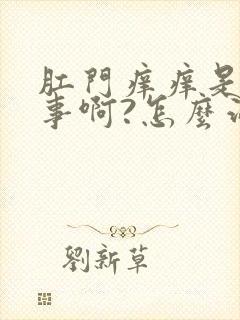 肛門痒痒是
事啊?怎麼
劉新草